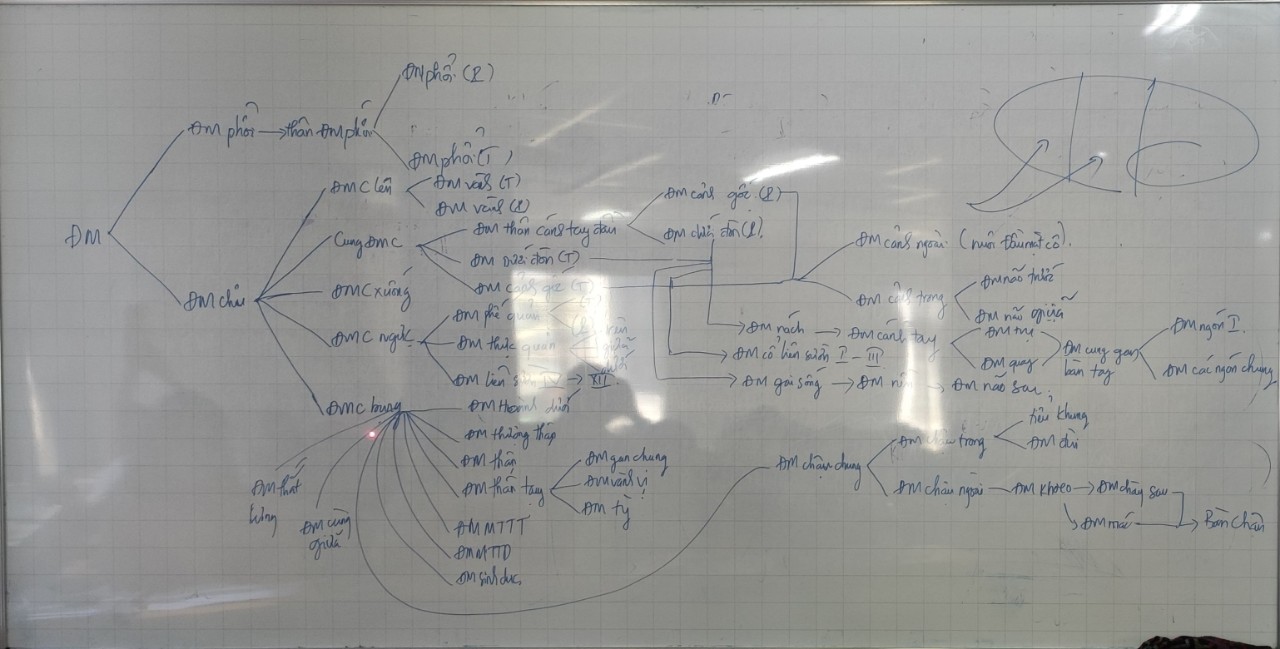 ĐM
ĐM phổi
thân ĐM phổi
ĐM phổi (P)
ĐM phổi (T)
ĐM chủ
ĐMC lên
ĐM vành (T)
ĐM vành (P)
Cung ĐMC
ĐM thân cánh tay đầu
ĐM cảnh gốc (P)
ĐM dưới đòn (P)
ĐM dưới đòn (T)
ĐM cảnh gốc (T)
ĐM cảnh ngoài (nuôi đầu mặt cổ)
ĐM cảnh trong
ĐM não trước
ĐM não giữa
ĐM nách
ĐM cánh tay
ĐM trụ
ĐM quay
ĐM cung gan
bàn tay
ĐM ngón I
ĐM các ngón chung
ĐM cổ liên sườn I - III
ĐM gai sống
ĐM nền
ĐM não sau
ĐMC xuống
ĐMC ngực
ĐM phế quản
(T)
ĐM thực quản
trên
giữa
dưới
ĐM liên sườn IV → XII
ĐMC bụng
ĐM Hoành dưới
ĐM thượng thận
ĐM thận
ĐM thân tạng
ĐM gan chung
ĐM vành vị
ĐM tỳ
ĐM MTTT
ĐM MTTD
ĐM sinh dục
ĐM thắt
lưng
ĐM cùng
giữa
ĐM chậu chung
ĐM chậu trong
tiểu khung
ĐM đùi
ĐM chậu ngoài
ĐM khoeo
ĐM chày sau
ĐM mác
Bàn chân